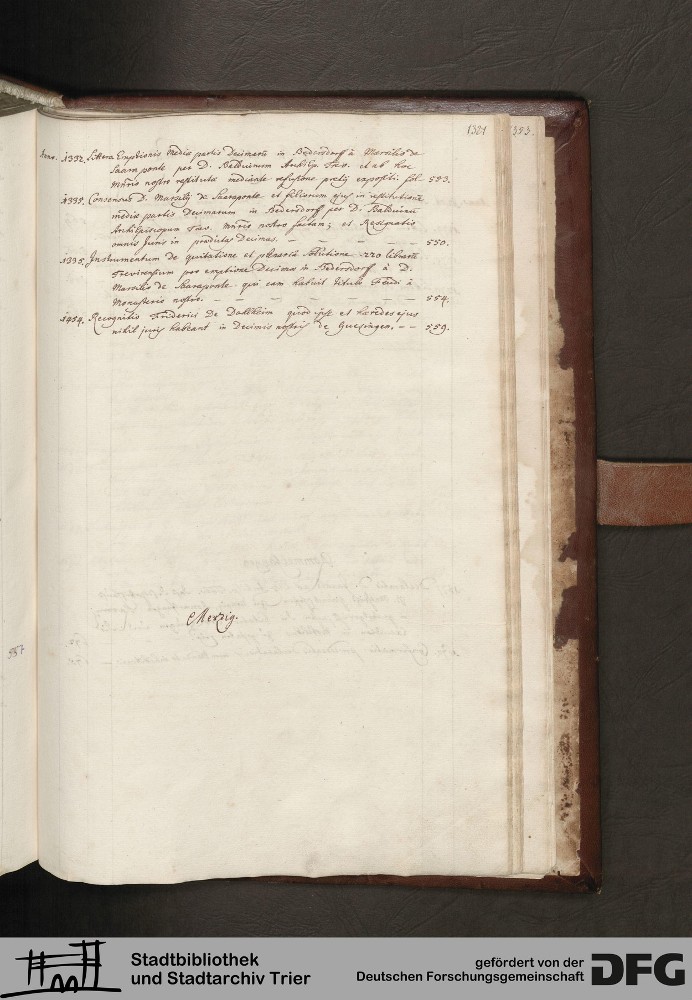 1321
323.
Anno. 1332. Littera Emptionis mediæ partis Decimarū in Bedersdorff à Marsilio de
Saarponte per D. Balduinum ArchiEp. Trev. et ab hoc
Mnrio nostro restitutæ mediante refusione pretij expositi. fol. 523.
1335. Consensus D. Marsilij de Saraponte, et filiorum ejus in restitutione
mediæ partis Decimarum in Bedersdorff per D. Balduinū
Archiepiscopum Trev. Mnrio nostro factam; et Resignatio
omnis Juris in prædictas Decimas. — — — — — 550.
1335. Instrumentum de quitatione et plenaria Solutione 220 librarū
Trevirensium pro emptione Decimæ in Bedersdorf à D.
Marsilio de Saraponte qui eam habuit titulo Feudi à
Monasterio nostro. — — — — — — — 554.
1454. Recognitio Friderici de Dahlheim quod ipse et hæredes ejus
nihil juris habeant in Decimis nostris de Guesingen. — — 559.
Merzig.
557
Stadtbibliothek
und Stadtarchiv Trier
gefördert von der
Deutschen Forschungsgemeinschaft
DFG